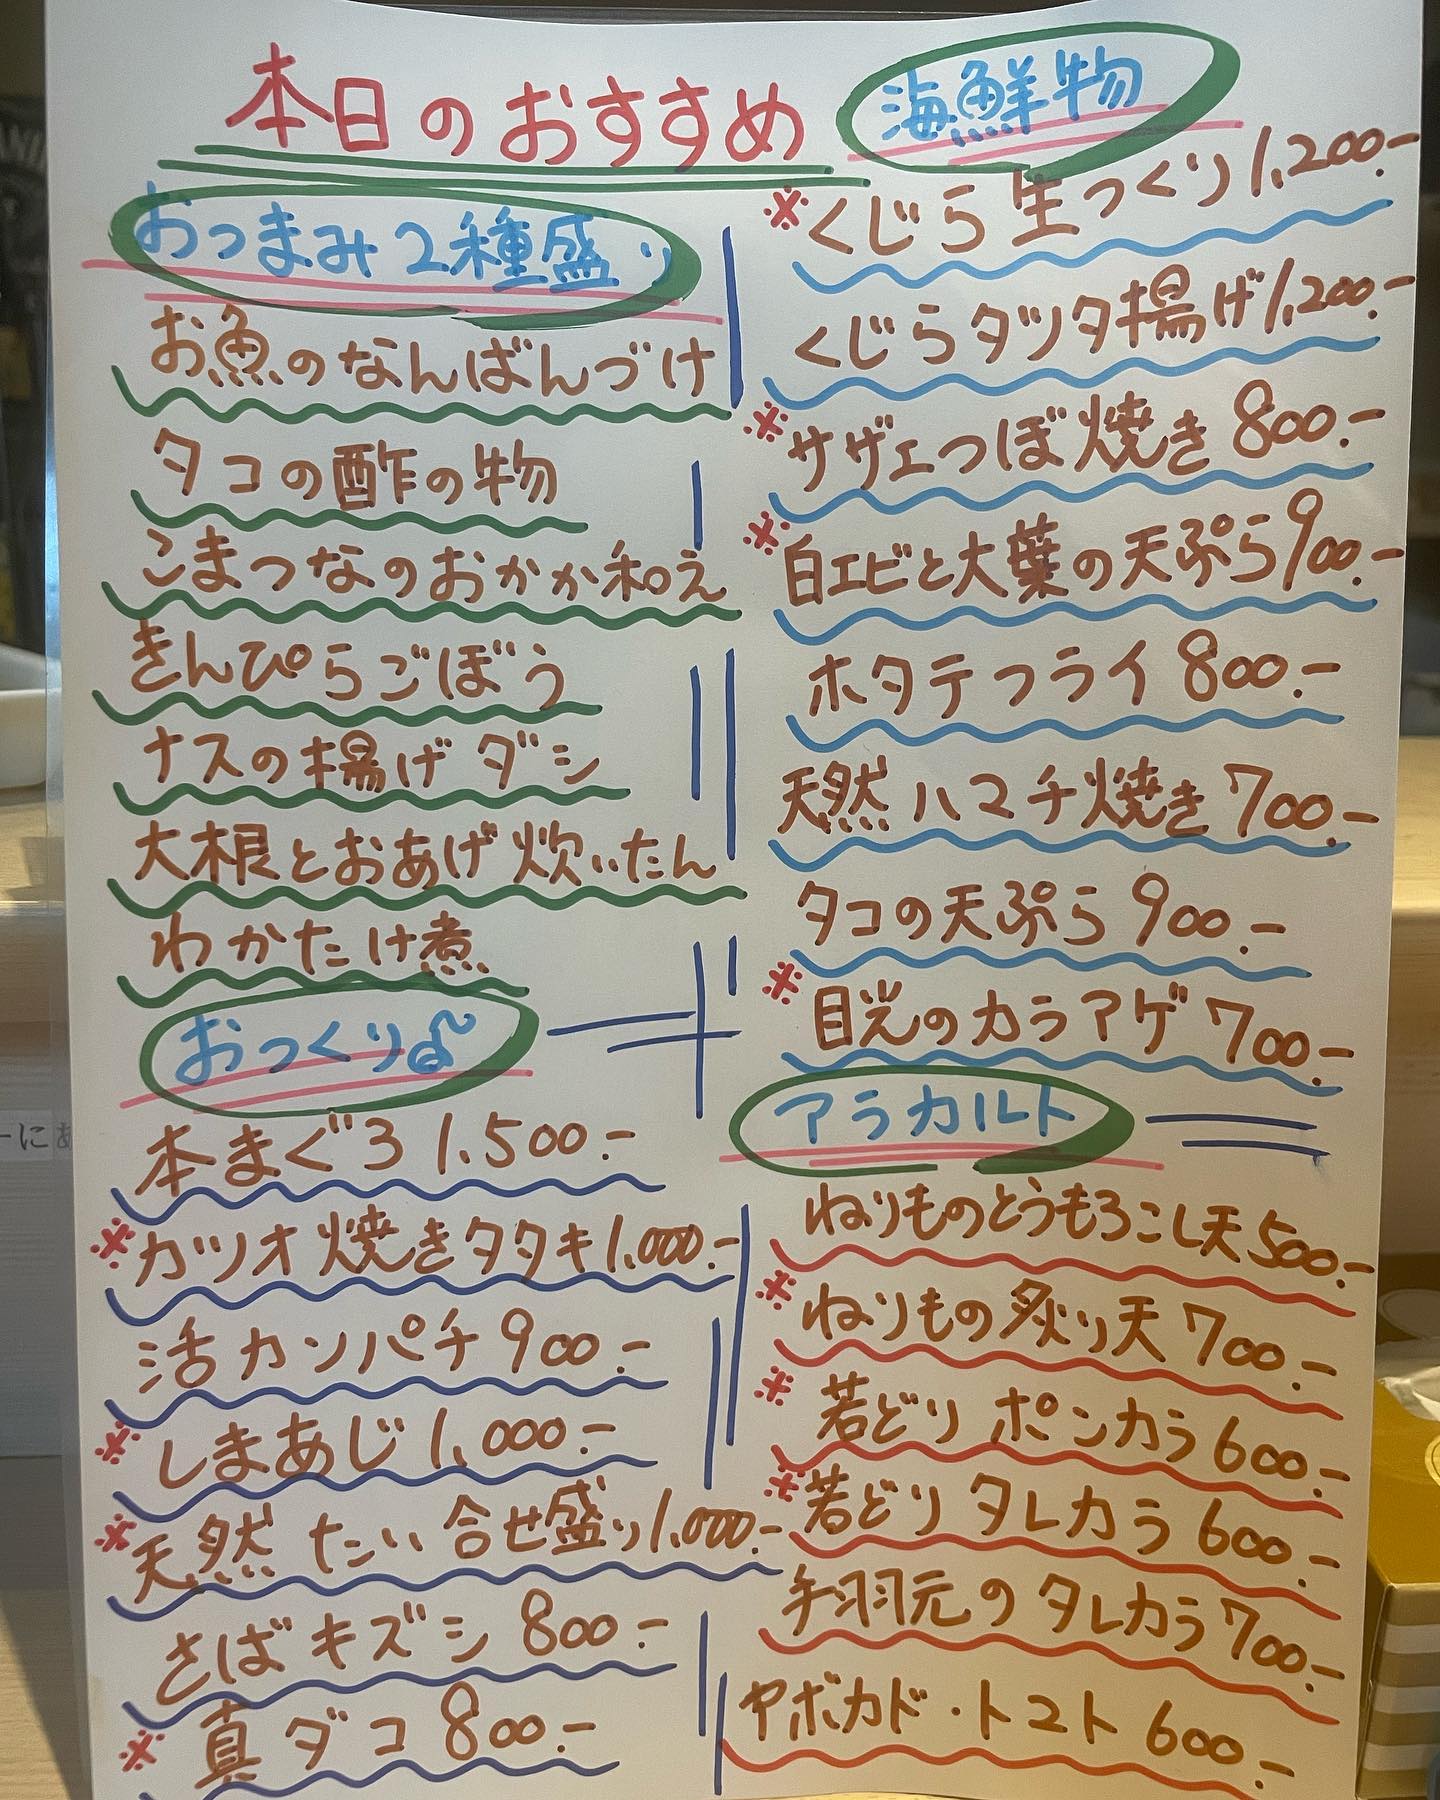 本日のおすすめ
おつまみ2種盛り
お魚のなんばんづけ
タコの酢の物
こまつなのおかか和え
きんぴらごぼう
ナスの揚げダシ
大根とおあげ炊いたん
わかたけ煮
おつくり
本まぐろ 1.500.-
※カツオ焼きタタキ 1.000.-
活カンパチ 900.-
※しまあじ 1.000.-
※天然 たい 合せ盛り 1.000.-
さばキズシ 800.-
※真ダコ 800.-
海鮮物
※くじら生つくり 1,200.-
くじらタツタ揚げ 1,200.-
※サザエつぼ焼き 800.-
※白エビと大葉の天ぷら 900.-
ホタテフライ 800.-
天然ハマチ焼き 700.-
タコの天ぷら 900.-
※目光のカラアゲ 700.-
アラカルト
ねりものとうもろこし天 500.-
※ねりもの炙り天 700.-
※若どり ポンカラ 600.-
※若どり タレカラ 600.-
手羽元の タレカラ 700.-
アボカド・トマト 600.-
ーにあ